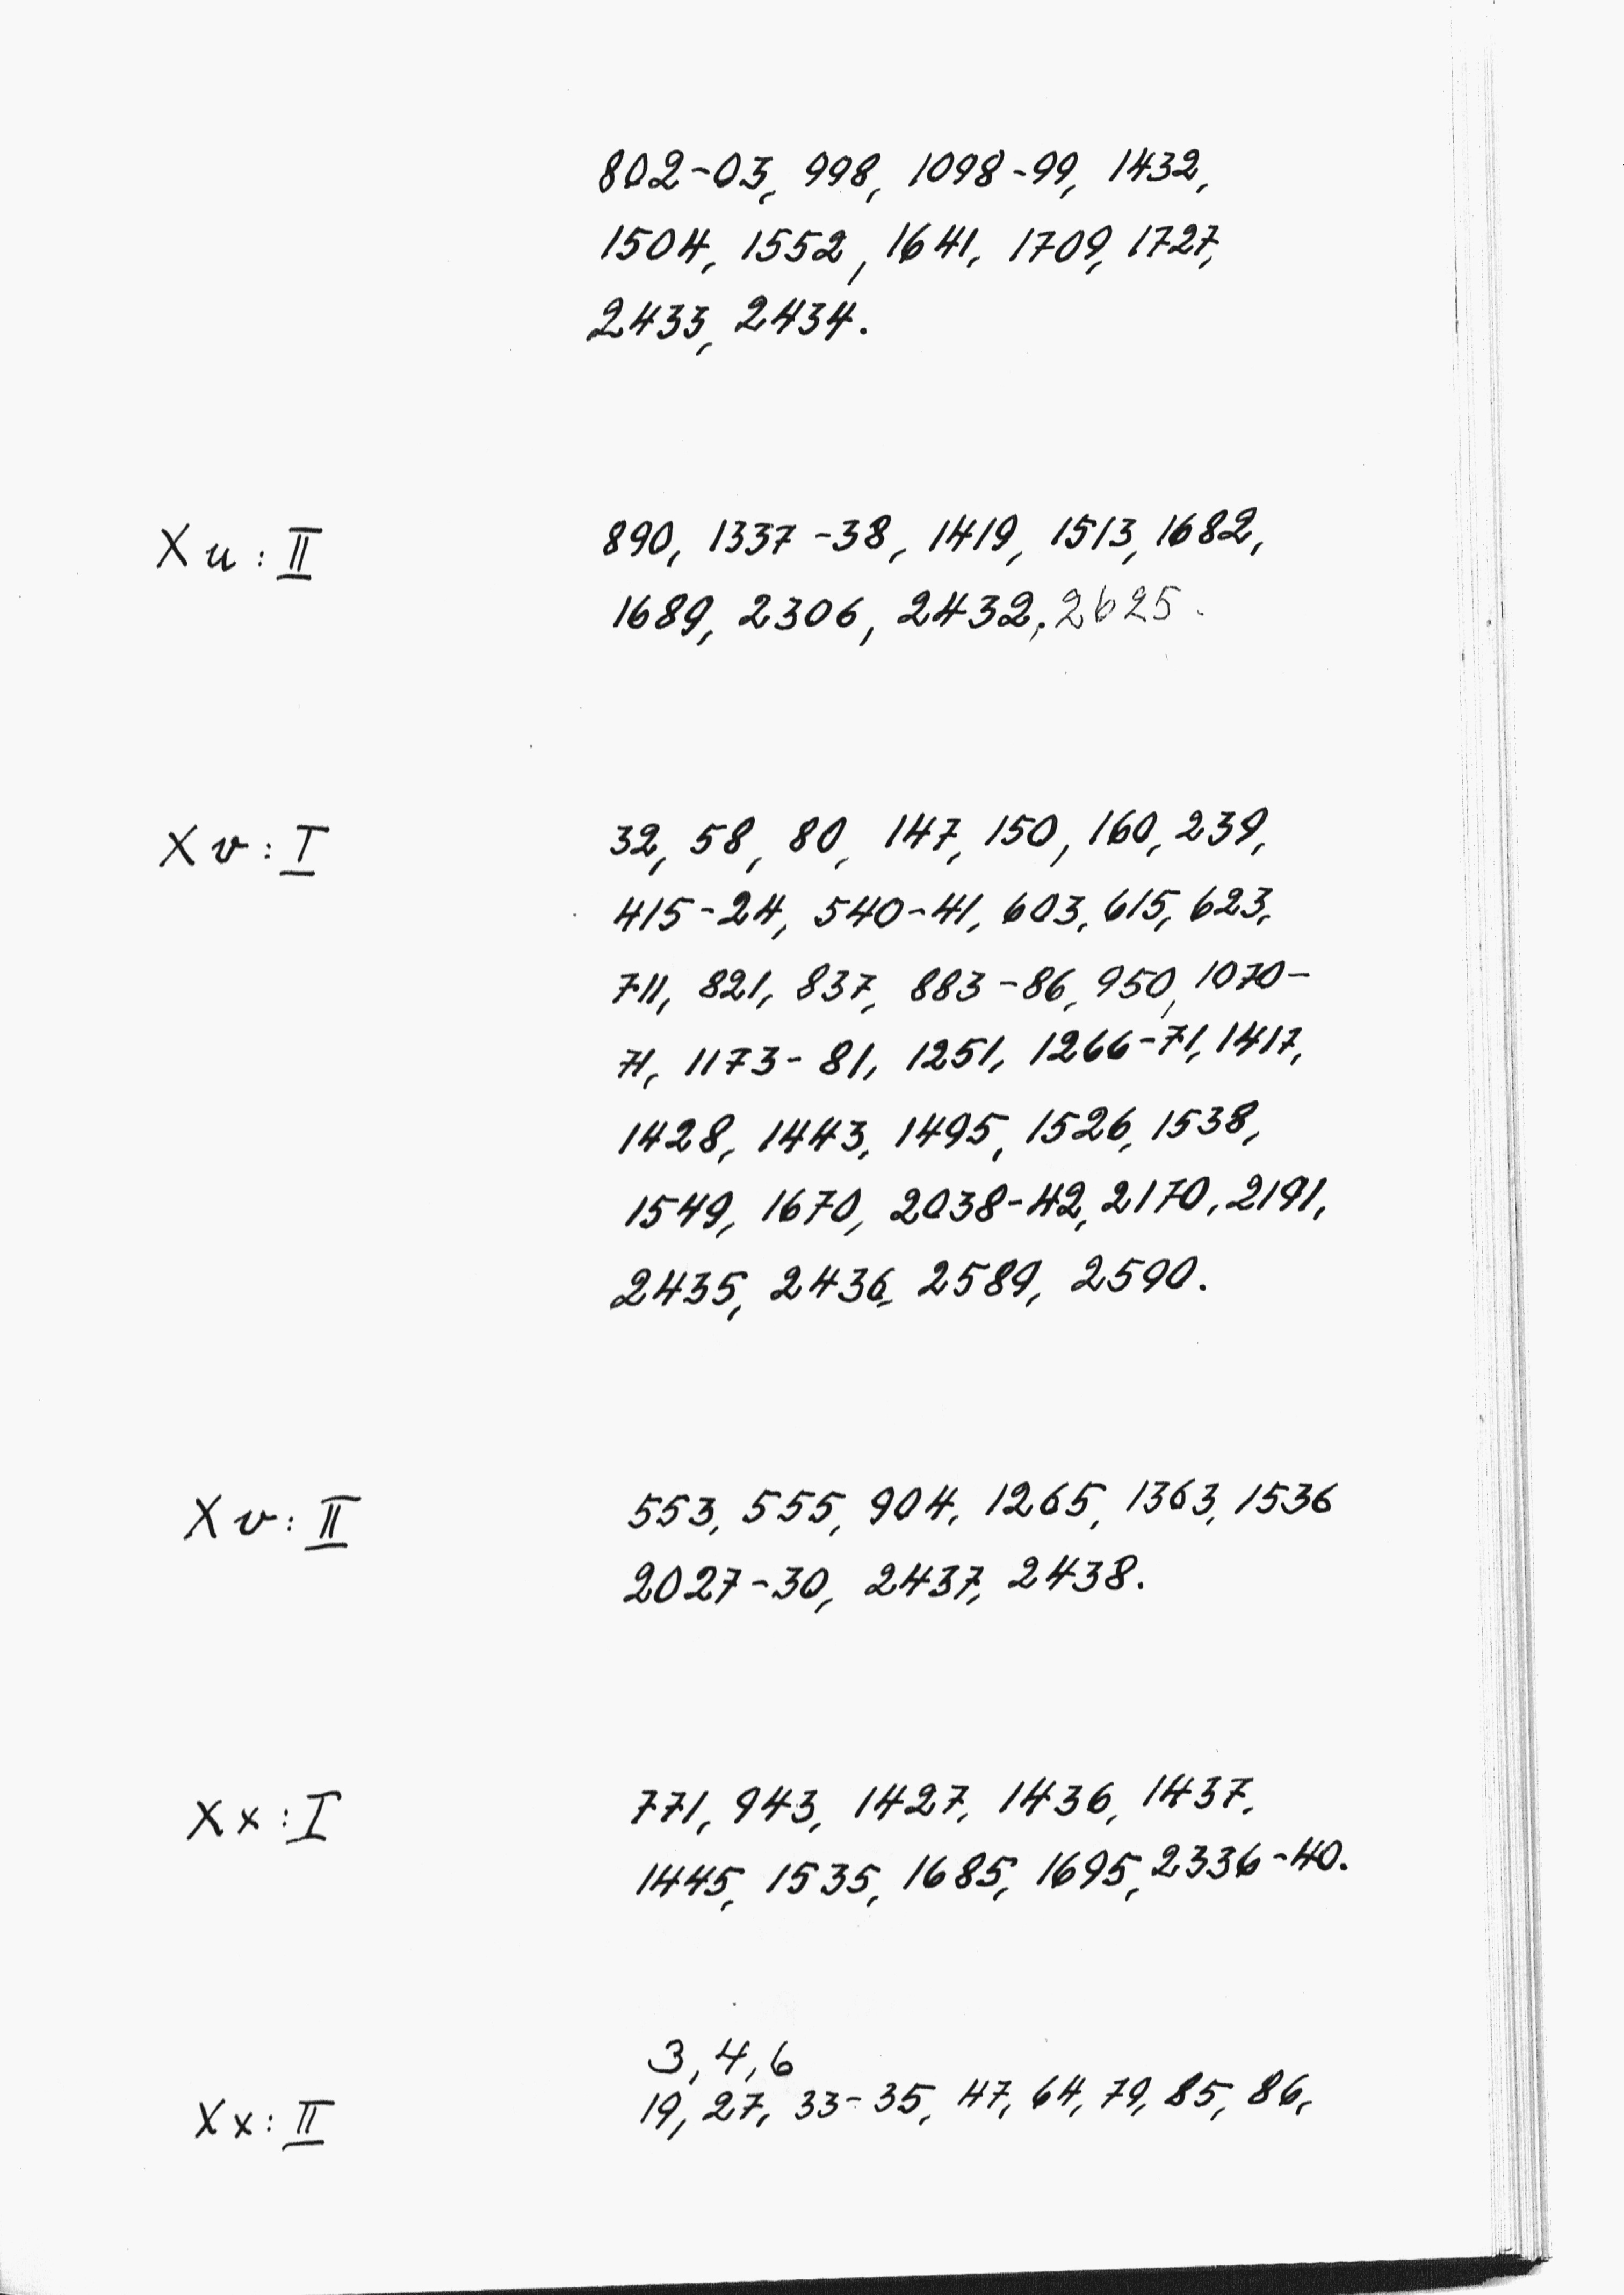 802-03, 998, 1098-99, 1432,
1504, 1552, 1641, 1709, 1727,
2433, 2434.
Xu: II 890, 1337-38, 1419, 1513, 1682,
1689, 2306, 2432, 2625.
Xv: I 32, 58, 80, 147, 150, 160, 239,
415-24, 540-41, 603, 615, 623,
711, 821, 837, 883-86, 950, 1070-
71, 1173-81, 1251, 1266-71, 1417,
1428, 1443, 1495, 1526, 1538,
1549, 1670, 2038-42, 2170, 2191,
2435, 2436, 2589, 2590.
Xv: II 553, 555, 904, 1265, 1363, 1536
2027-30, 2437, 2438.
Xx: I 771, 943, 1427, 1436, 1437,
1445, 1535, 1685, 1695, 2336-40.
3, 4, 6
Xx: II 19, 27, 33-35, 47, 64, 79, 85, 86,